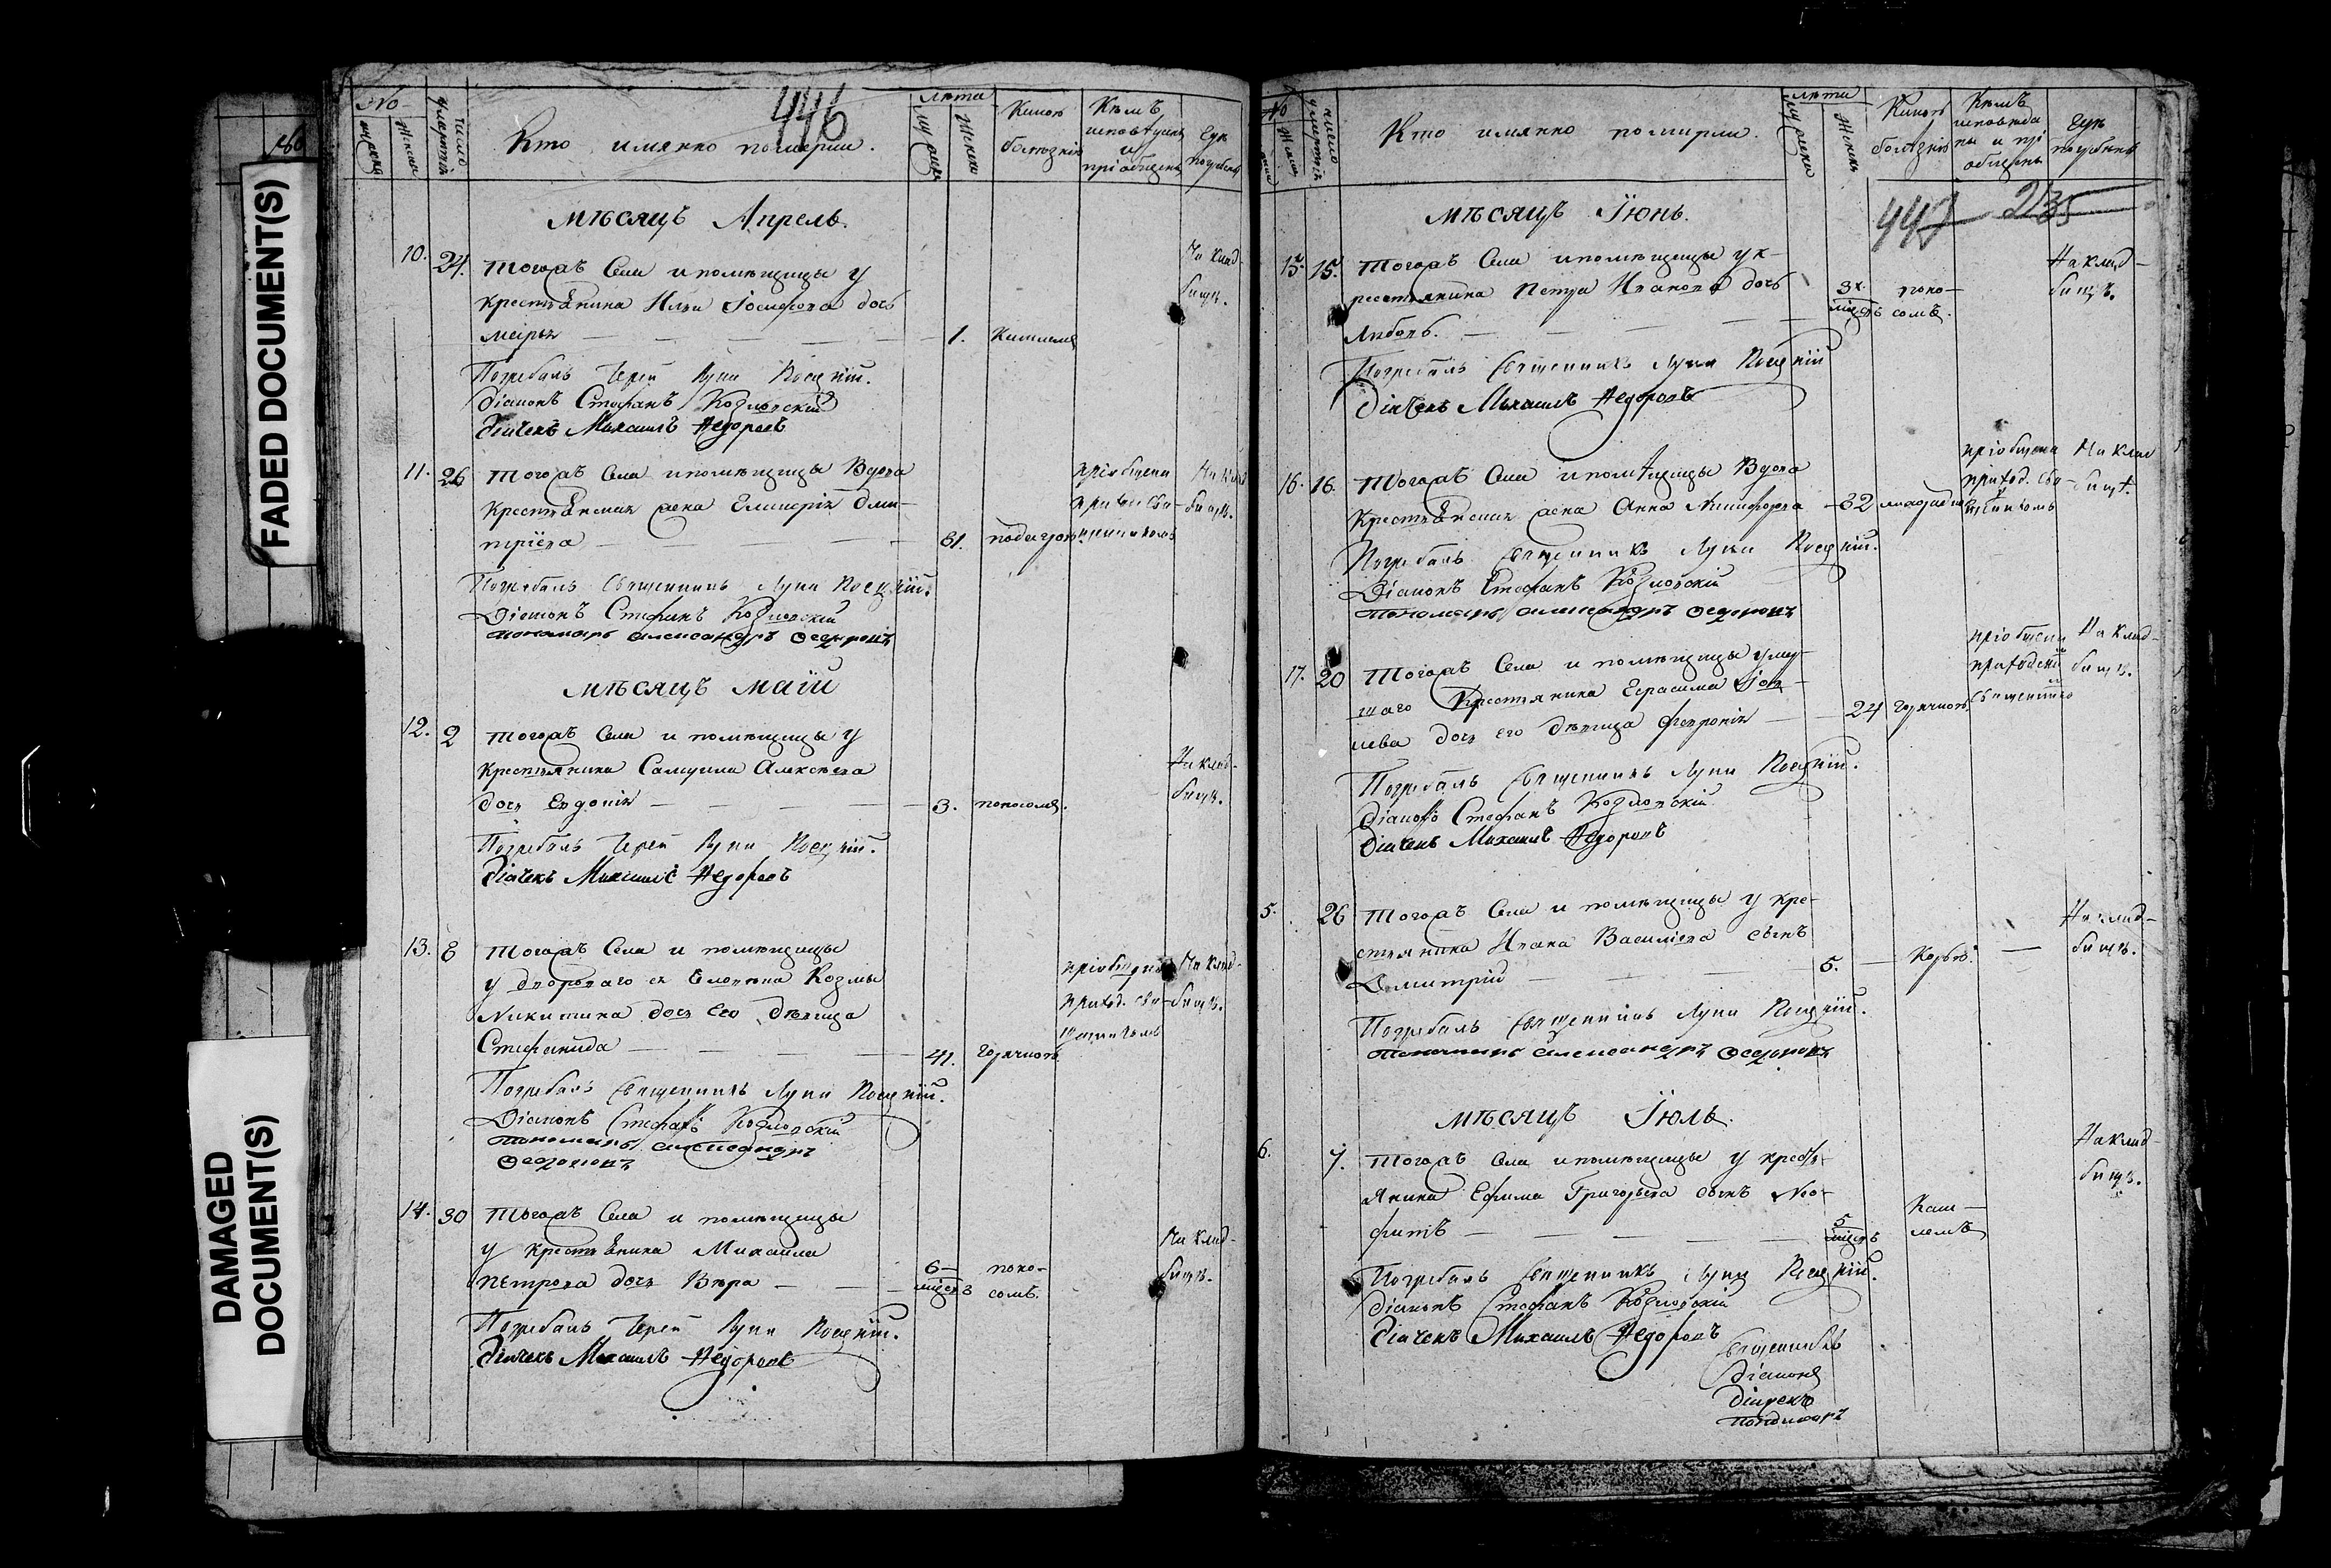 FADED DOCUMENT(S)
DAMAGED
DOCUMENT(S)
446
№
Кто имянно померли.
лѣта
Какою болѣзнію
Кѣмъ исповѣданы и пріобщены
Гдѣ погребены
мѣсяцъ Апрель.
10. 24. Тогожъ Села и помѣщицы у
крестьянина Ильи Іосифова дочь
Марья 1. Кашлемъ
На клад-
бищѣ.
Погребалъ Іерей Лука
Діаконъ Стефанъ Козловскій
Діачекъ Михаилъ Федоровъ
11. 26 Тогожъ Села и помѣщицы Вдова
крестьянская жена Гликерія Дми-
тріева 81.
пріобщена
приход. свя-
щенникомъ
На клад-
бищѣ.
Погребалъ Священникъ Лука
Діаконъ Стефанъ Козловскій
пономарь Александръ Федоровъ
мѣсяцъ маій
12. 2 Тогожъ Села и помѣщицы у
крестьянина Самуила Алексѣева
дочь Евдокія 3. поносомъ.
На клад-
бищѣ.
Погребалъ Іерей Лука
Діачекъ Михаилъ Федоровъ
13. 8 Тогожъ Села и помѣщицы
у двороваго ея человѣка Козмы
Никитина дочь его дѣвица
Стефанида 41. Горячкою
пріобщена
приход. свя-
щенникомъ
На клад-
бищѣ.
Погребалъ Священникъ Лука
Діаконъ Стефанъ Козловскій
пономарь Александръ
Федоровъ
14. 30 Тогожъ Села и помѣщицы
у крестьянина Михаила
Петрова дочь Вѣра 6 мѣсяцъ поно-
сомъ.
На клад-
бищѣ.
Погребалъ Іерей Лука
Діачекъ Михаилъ Федоровъ
№
Кто имянно померли.
лѣта
Какою болѣзнію
Кѣмъ исповѣданы и пріобщены
Гдѣ погребены
447 235
мѣсяцъ Іюнь.
15. 15. Тогожъ Села и помѣщицы у к-
рестьянина Петра Иванова дочь
Любовь. 3х мѣсяцъ поно-
сомъ.
На клад-
бищѣ.
Погребалъ Священникъ Лука
Діачекъ Михаилъ Федоровъ
16. 16. Тогожъ Села и помѣщицы Вдова
крестьянская жена Анна Никифорова 82
пріобщена
приход. свя-
щенникомъ
На клад-
бищѣ.
Погребалъ Священникъ Лука
Діаконъ Стефанъ Козловскій
пономарь Александръ Федоровъ
17. 20 Тогожъ Села и помѣщицы умер-
шаго крестьянина Герасима
дочь его дѣвица Феврония 24 Горячкою
пріобщена
приходскимъ
священнико
На клад-
бищѣ.
Погребалъ Священникъ Лука
Діаконъ Стефанъ Козловскій
Діачекъ Михаилъ Федоровъ
5. 26 Тогожъ Села и помѣщицы у кре-
стьянина Ивана Василіева сынъ
Димитрій 5. Корью.
На клад-
бищѣ.
Погребалъ Священникъ Лука
пономарь Александръ Федоровъ
мѣсяцъ Іюль.
6. 7. Тогожъ Села и помѣщицы у кресть-
янина Ефима Григорьева сынъ Нео-
фитъ 5 мѣсяцъ Каш-
лемъ
На клад-
бищѣ.
Погребалъ Священникъ Лука
Діаконъ Стефанъ Козловскій
Діачекъ Михаилъ Федоровъ
Священникъ
Діаконъ
Діачекъ
пономарь